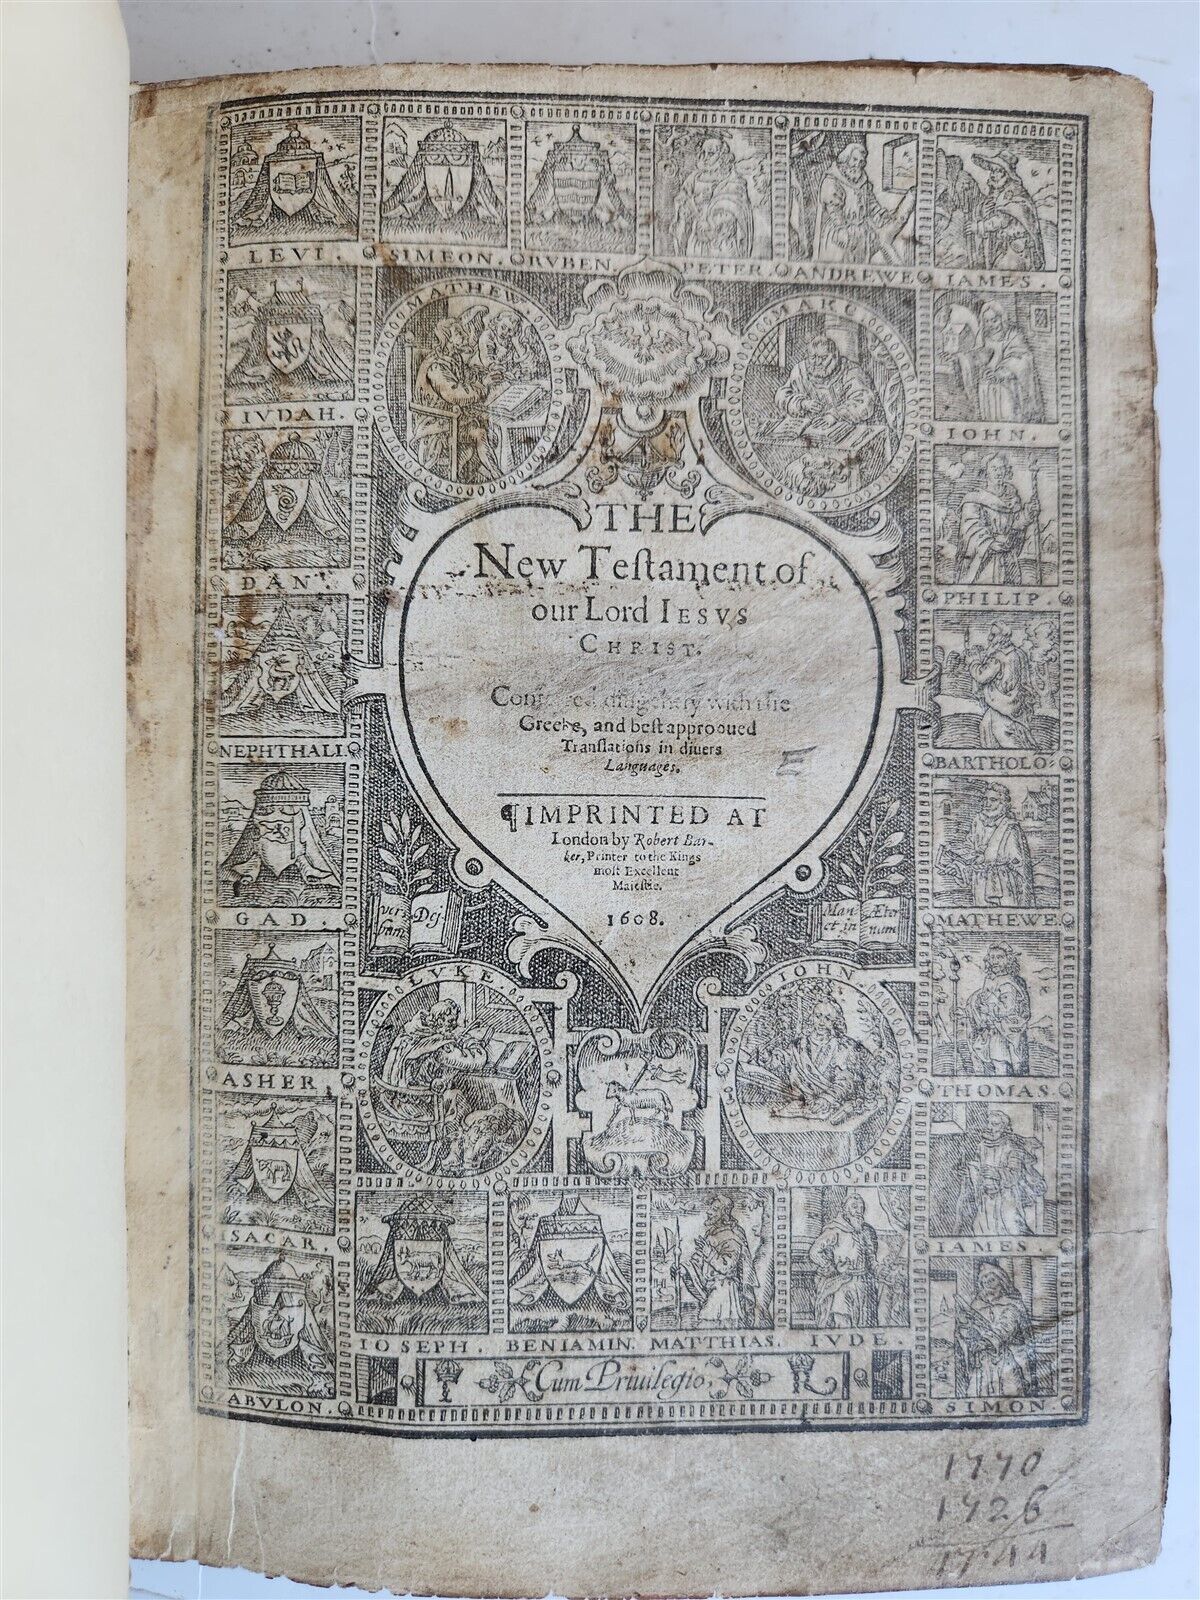 LEVI. SIMEON. RVBEN. PETER. ANDREWE IAMES.
MATHEW MARKE
IVDAH. IOHN.
DAN. PHILIP.
NEPHTHALI. BARTHOLO:
GAD. MATHEWE.
ASHER. THOMAS.
ISACAR. IAMES.
THE
New Teſtament of
our Lord IESVS
CHRIST.
Conferred diligently with the
Greeke, and beſt approoued
Tranſlations in diuers
Languages.
E
¶IMPRINTED AT
London by Robert Bar-
ker, Printer to the Kings
moſt Excellent
Maieſtie.
1608.
Ver-
bum
Dei
Ma-
net in
Æter
num
LVKE IOHN
IOSEPH. BENIAMIN. MATTHIAS. IVDE.
ZABVLON. Cum Priuilegio. SIMON
1770
1726
1744